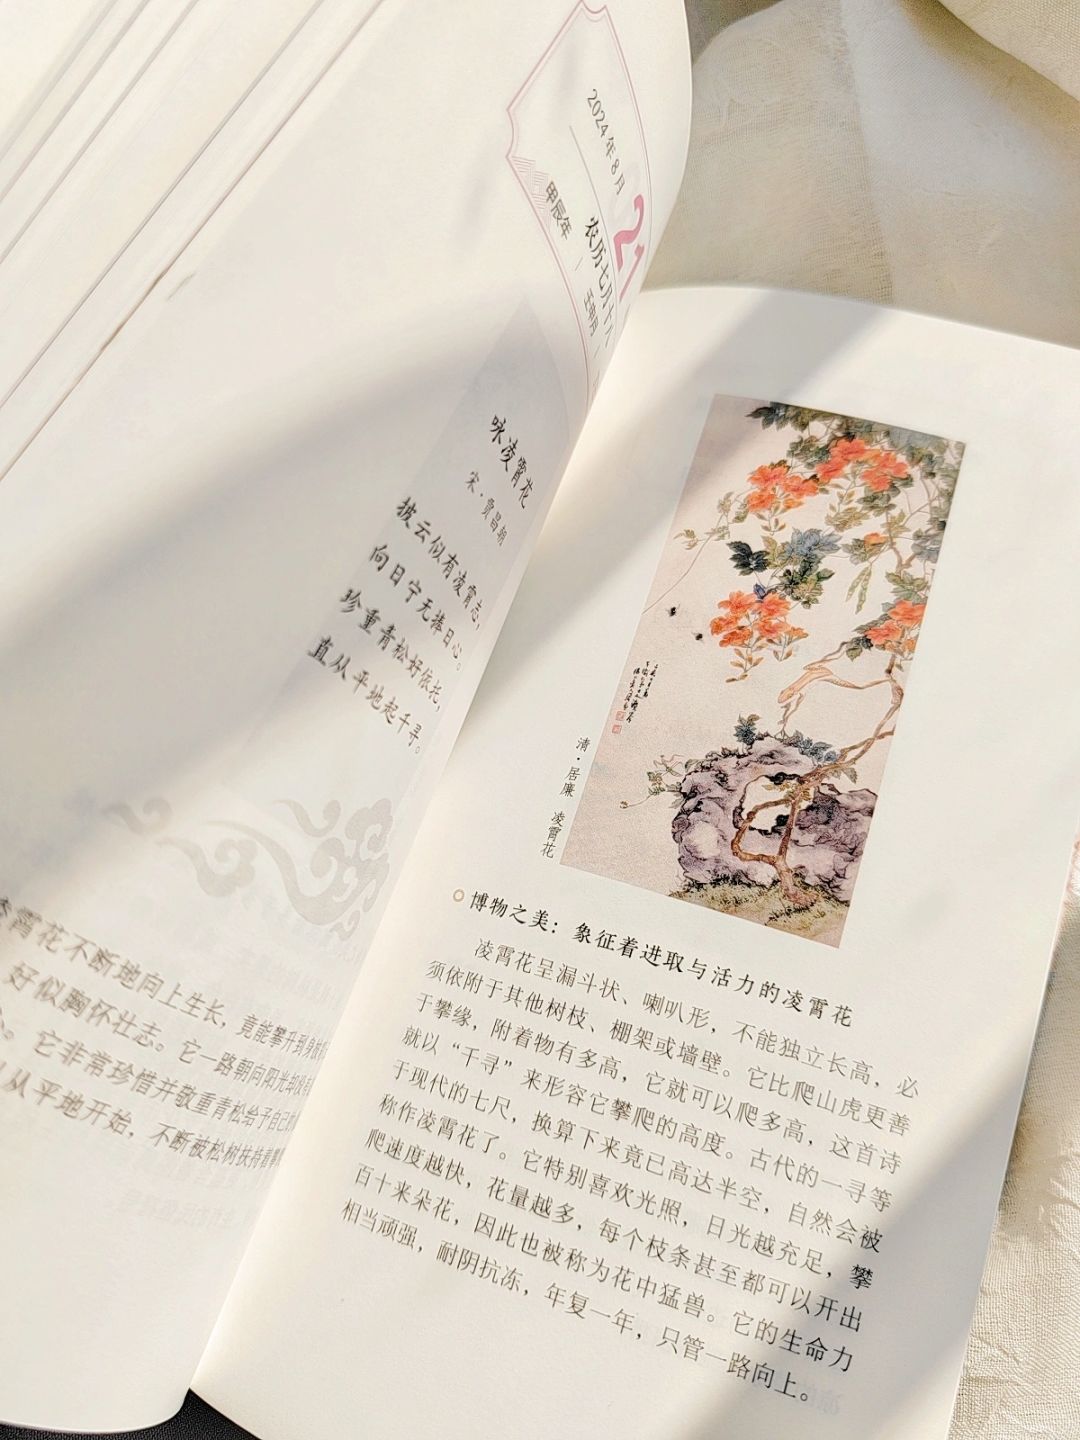 2024年8月
21
农历七月十八
甲辰年
壬申月
咏凌霄花
宋·贾昌朝
披云似有凌霄志，
向日宁无捧日心。
珍重青松好依托，
直从平地起千寻。
霄花不断地向上生长，竟能攀升到
好似胸怀壮志。它一路朝向阳光却
。它非常珍惜并敬重青松给予自己
从平地开始，不断被松树扶持着
清·居廉 凌霄花
博物之美：象征着进取与活力的凌霄花
凌霄花呈漏斗状、喇叭形，不能独立长高，必
须依附于其他树枝、棚架或墙壁。它比爬山虎更善
于攀缘，附着物有多高，它就可以爬多高，这首诗
就以“千寻”来形容它攀爬的高度。古代的一寻等
于现代的七尺，换算下来竟已高达半空，自然会被
称作凌霄花了。它特别喜欢光照，日光越充足，攀
爬速度越快，花量越多，每个枝条甚至都可以开出
百十来朵花，因此也被称为花中猛兽。它的生命力
相当顽强，耐阴抗冻，年复一年，只管一路向上。